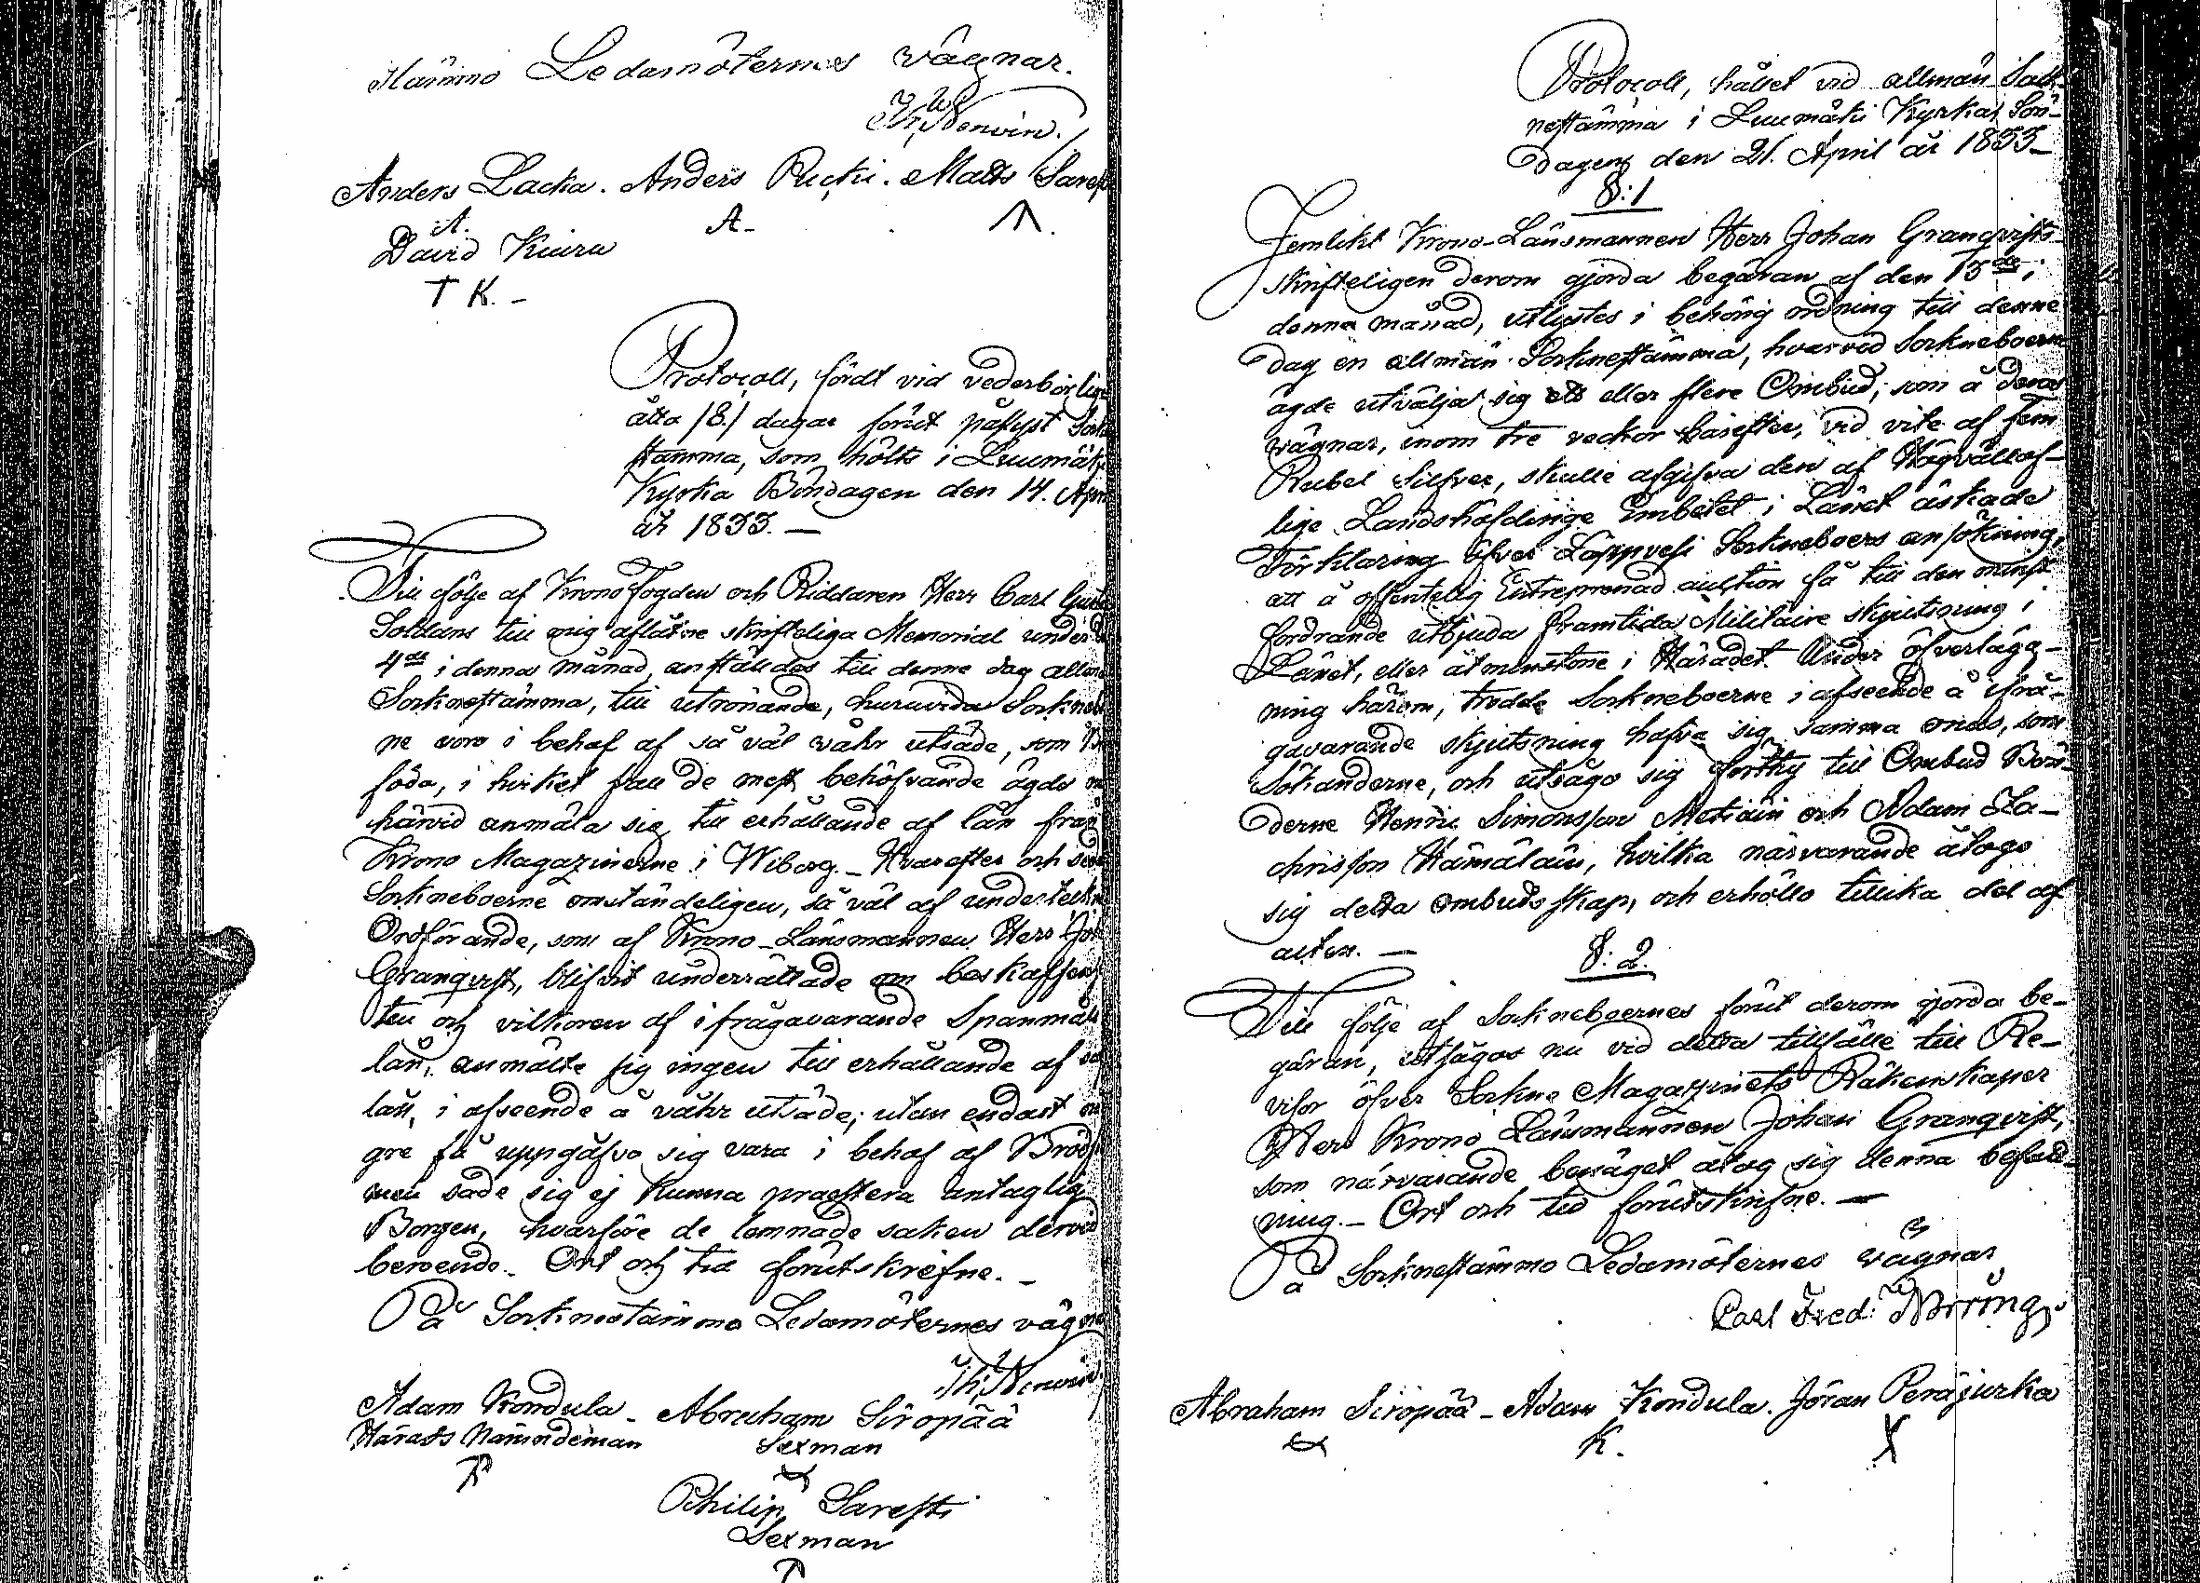 stämmo Ledamöternes vägnar.
Th. Nerwin.
Anders Lacka. Anders Pucki. Matts Sarest
A. A.
David Kiuru
T K. –
Protocoll, fördt vid vederbörlige
åtta /8./ dagar förut pålyst Sock
stämma, som hölts i Luumäki
Kyrka Böndagen den 14. April
år 1833. –
Till följe af KronoFogden och Riddaren Herr Carl
Soldans till mig aflåtne skrifteliga Memorial under
4de i denna månad, anstäldes till denne dag allmän
Sockne stämma, till utrönande, huruvida Sockneboer
ne voro i behof af så väl våhr utsäde, som
föda, i hvilket fall de mest behöfvande ägde
härvid anmäla sig till erhållande af lån från
Krono Magazinerne i Wiborg. – Hvarefter och
Sockneboerne omständeligen, så väl af undertekna
Ordförande, som af Krono-Länsmannen Herr Joh
Granqvist, blifvit underrättade om beskaffenhe
ten och vilkoren af ifrågavarande Spanmåls
lån, anmälte sig ingen till erhållande af
lån, i afseende å våhr utsäde; utan endast
gre få uppgåfvo sig vara i behof af Bröd
men sade sig ej kunna præstera antaglig
Borgen, hvarföre de lemnade saken dervid
beroende. Ort och tid förutskrefne. –
På Socknestämmo Ledamöternes vägnar
Th. Nerwin
Adam Kondula – Abraham Siropää
Härads Nämndeman Sexman
Philip Saresti
Sexman
Protocoll, hållet vid allmän Sock-
nestämma i Luumäki Kyrka, Sön-
dagen den 21. April år 1833 –
§: 1
Jemlikt Krono-Länsmannen Herr Johan Granqvists
skrifteligen derom gjorda begäran af den 15de i
denna månad, utlystes i behörig ordning till denne
dag en allmän Sockne stämma, hvarvid Sockneboerne
ägde utvälja sig ett eller flere Ombud, som å deras
vägnar, inom tre veckor härefter, vid vite af fem
Rubel Silfver, skulle afgifva den af Högvällof-
lige Landshöfdinge Embetet i Länet äskade
Förklaring öfver Lappvesi Sockneboers ansökning,
att å offentelig Entreprenad auction få till den minst
fordrande utbjuda framtida Militaire skjutsning i
Länet, eller åtminstone i Häradet. Under öfverlägg-
ning härom, trodde Sockneboerne i afseende å ifrå-
gavarande skjutsning hafva sig samma onus, som
Sökanderne, och utsågo sig förthy till Ombud Bön-
derne Henric Simonsson Metiäin och Adam Za-
chrisson Hämäläin, hvilka närvarande åtogo
sig detta ombudsskap, och erhöllo tillika del af
acten. –
§: 2.
Till följe af Sockneboernes förut derom gjorda be-
gäran, utsågos nu vid detta tillfälle till Re-
visor öfver Sockne Magazinets Räkenskaper
Herr Krono Länsmannen Johan Granqvist,
som närvarande beväget åtog sig denna befatt-
ning. – Ort och tid förutskrifne. –
På Socknestämmo Ledamöternes vägnar
Carl Fred:
Abraham Siropää – Adam Kondula. Jöran Peräjurka
K. X